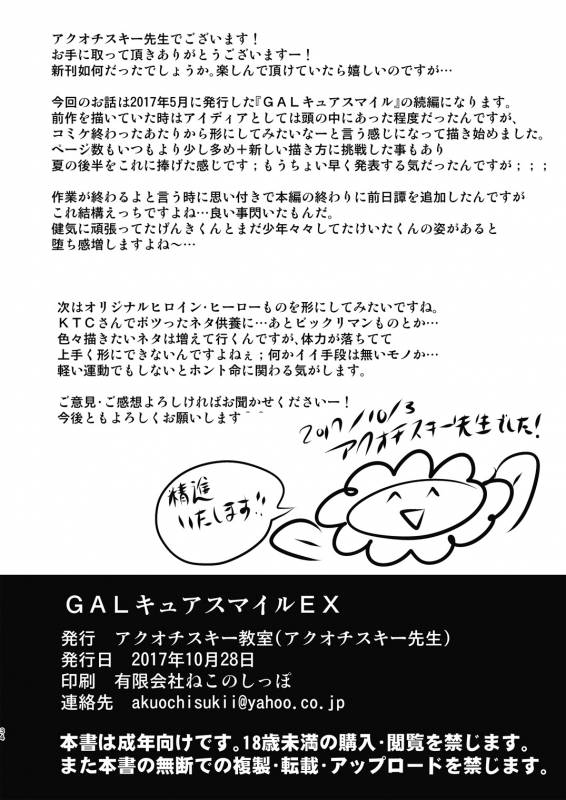 アクオチスキー先生でございます！
お手に取って頂きありがとうございますー！
新刊如何だったでしょうか。楽しんで頂けていたら嬉しいのですが…
今回のお話は2017年5月に発行した『GALキュアスマイル』の続編になります。
前作を描いていた時はアイディアとしては頭の中にあった程度だったんですが、
コミケ終わったあたりから形にしてみたいなーと言う感じになって描き始めました。
ページ数もいつもより少し多め＋新しい描き方に挑戦した事もあり
夏の後半をこれに捧げた感じです；もうちょい早く発表する気だったんですが；；；
作業が終わるよと言う時に思い付きで本編の終わりに前日譚を追加したんですが
これ結構えっちですよね…良い事閃いたもんだ。
健気に頑張ってたげんきくんとまだ少年々々してたけいたくんの姿があると
堕ち感増しますよね～…
次はオリジナルヒロイン・ヒーローものを形にしてみたいですね。
KTCさんでボツったネタ供養に…あとビックリマンものとか…
色々描きたいネタは増えて行くんですが、体力が落ちてて
上手く形にできないんですよねぇ；何かイイ手段は無いモノか…
軽い運動でもしないとホント命に関わる気がします。
ご意見・ご感想よろしければお聞かせくださいー！
今後ともよろしくお願いします＾＾
2017/10/3
アクオチスキー先生でした！
精進
いたします!!
GALキュアスマイルEX
発行　アクオチスキー教室（アクオチスキー先生）
発行日　2017年10月28日
印刷　有限会社ねこのしっぽ
連絡先　akuochisukii@yahoo.co.jp
本書は成年向けです。18歳未満の購入・閲覧を禁じます。
また本書の無断での複製・転載・アップロードを禁じます。